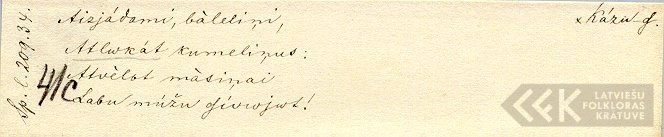 Kāzu g.
Aizjādami, bāleliņi,
Atlwkāt kumeliņus:
Atvēlat māsiņai
Labu mūžu givwjwt!
Sp. l. 209. 34.
41C
LATVIEŠU
FOLKLORAS
KRĀTUVE